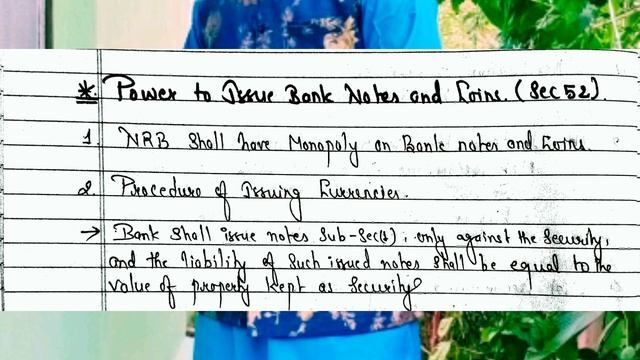 * Power to Issue Bank Notes and Coins. (Sec 52).
1. NRB Shall have Monopoly on Bank notes and Coins.
2. Procedure of Issuing Currencies.
→ Bank Shall issue notes Sub-Sec(1); only against the Security,
and the liability of Such issued notes Shall be equal to the
value of property kept as Security